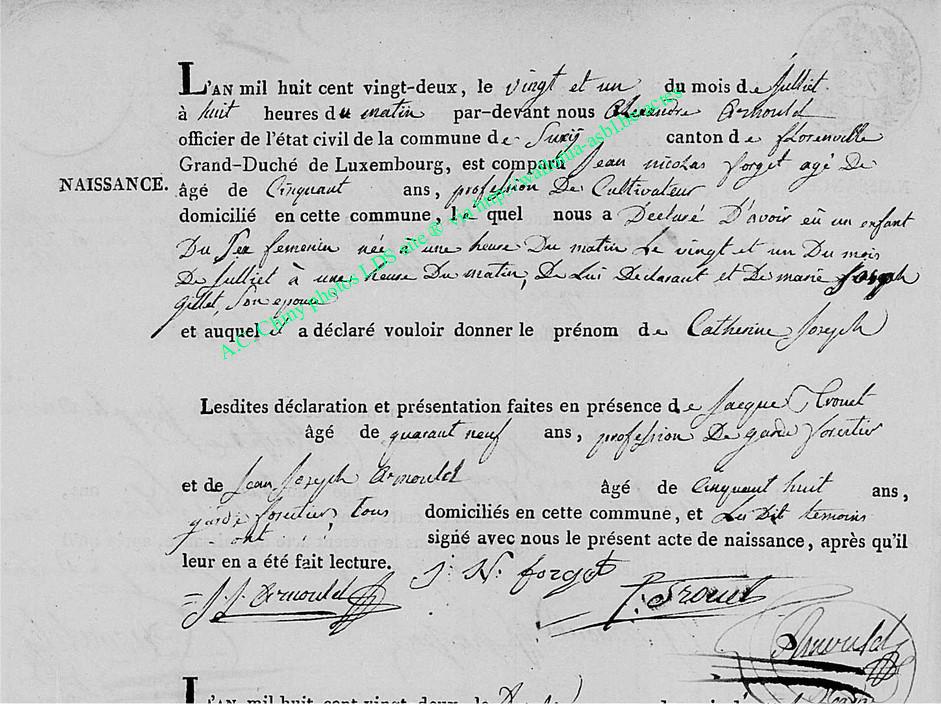 L'AN mil huit cent vingt-deux, le vingt et un du mois de Julliet
à huit heures du matin par-devant nous Alexandre Arnould
officier de l'état civil de la commune de Suxÿ canton de florenville
Grand-Duché de Luxembourg, est comparu Jean nicolas forget agé de
NAISSANCE.
âgé de Cinquant ans, profession De Cultivateur
domicilié en cette commune, le quel nous a Déclaré D'avoir eû un enfant
Du Sex femenin née à une heure Du matin Le vingt et un Du mois
De Julliet à une heure Du matin, De Lui Declarant et De marie Joseph
gillet, Son epouse
et auquel il a déclaré vouloir donner le prénom de Catherine Joseph
Lesdites déclaration et présentation faites en présence de Jacque Trouet
âgé de quarant neuf ans, profession De garde forestier
et de Jean Joseph Arnould âgé de Cinquant huit ans,
garde forestier, tous domiciliés en cette commune, et Les Dit temoins
ont signé avec nous le présent acte de naissance, après qu'il
leur en a été fait lecture.
J. N. forget
J. J. Arnould
Trouet
Arnould
L'AN mil huit cent vingt-deux, le
A.C. Chiny photos LDS site ® via http://www.luxroots-asbl.be/actes